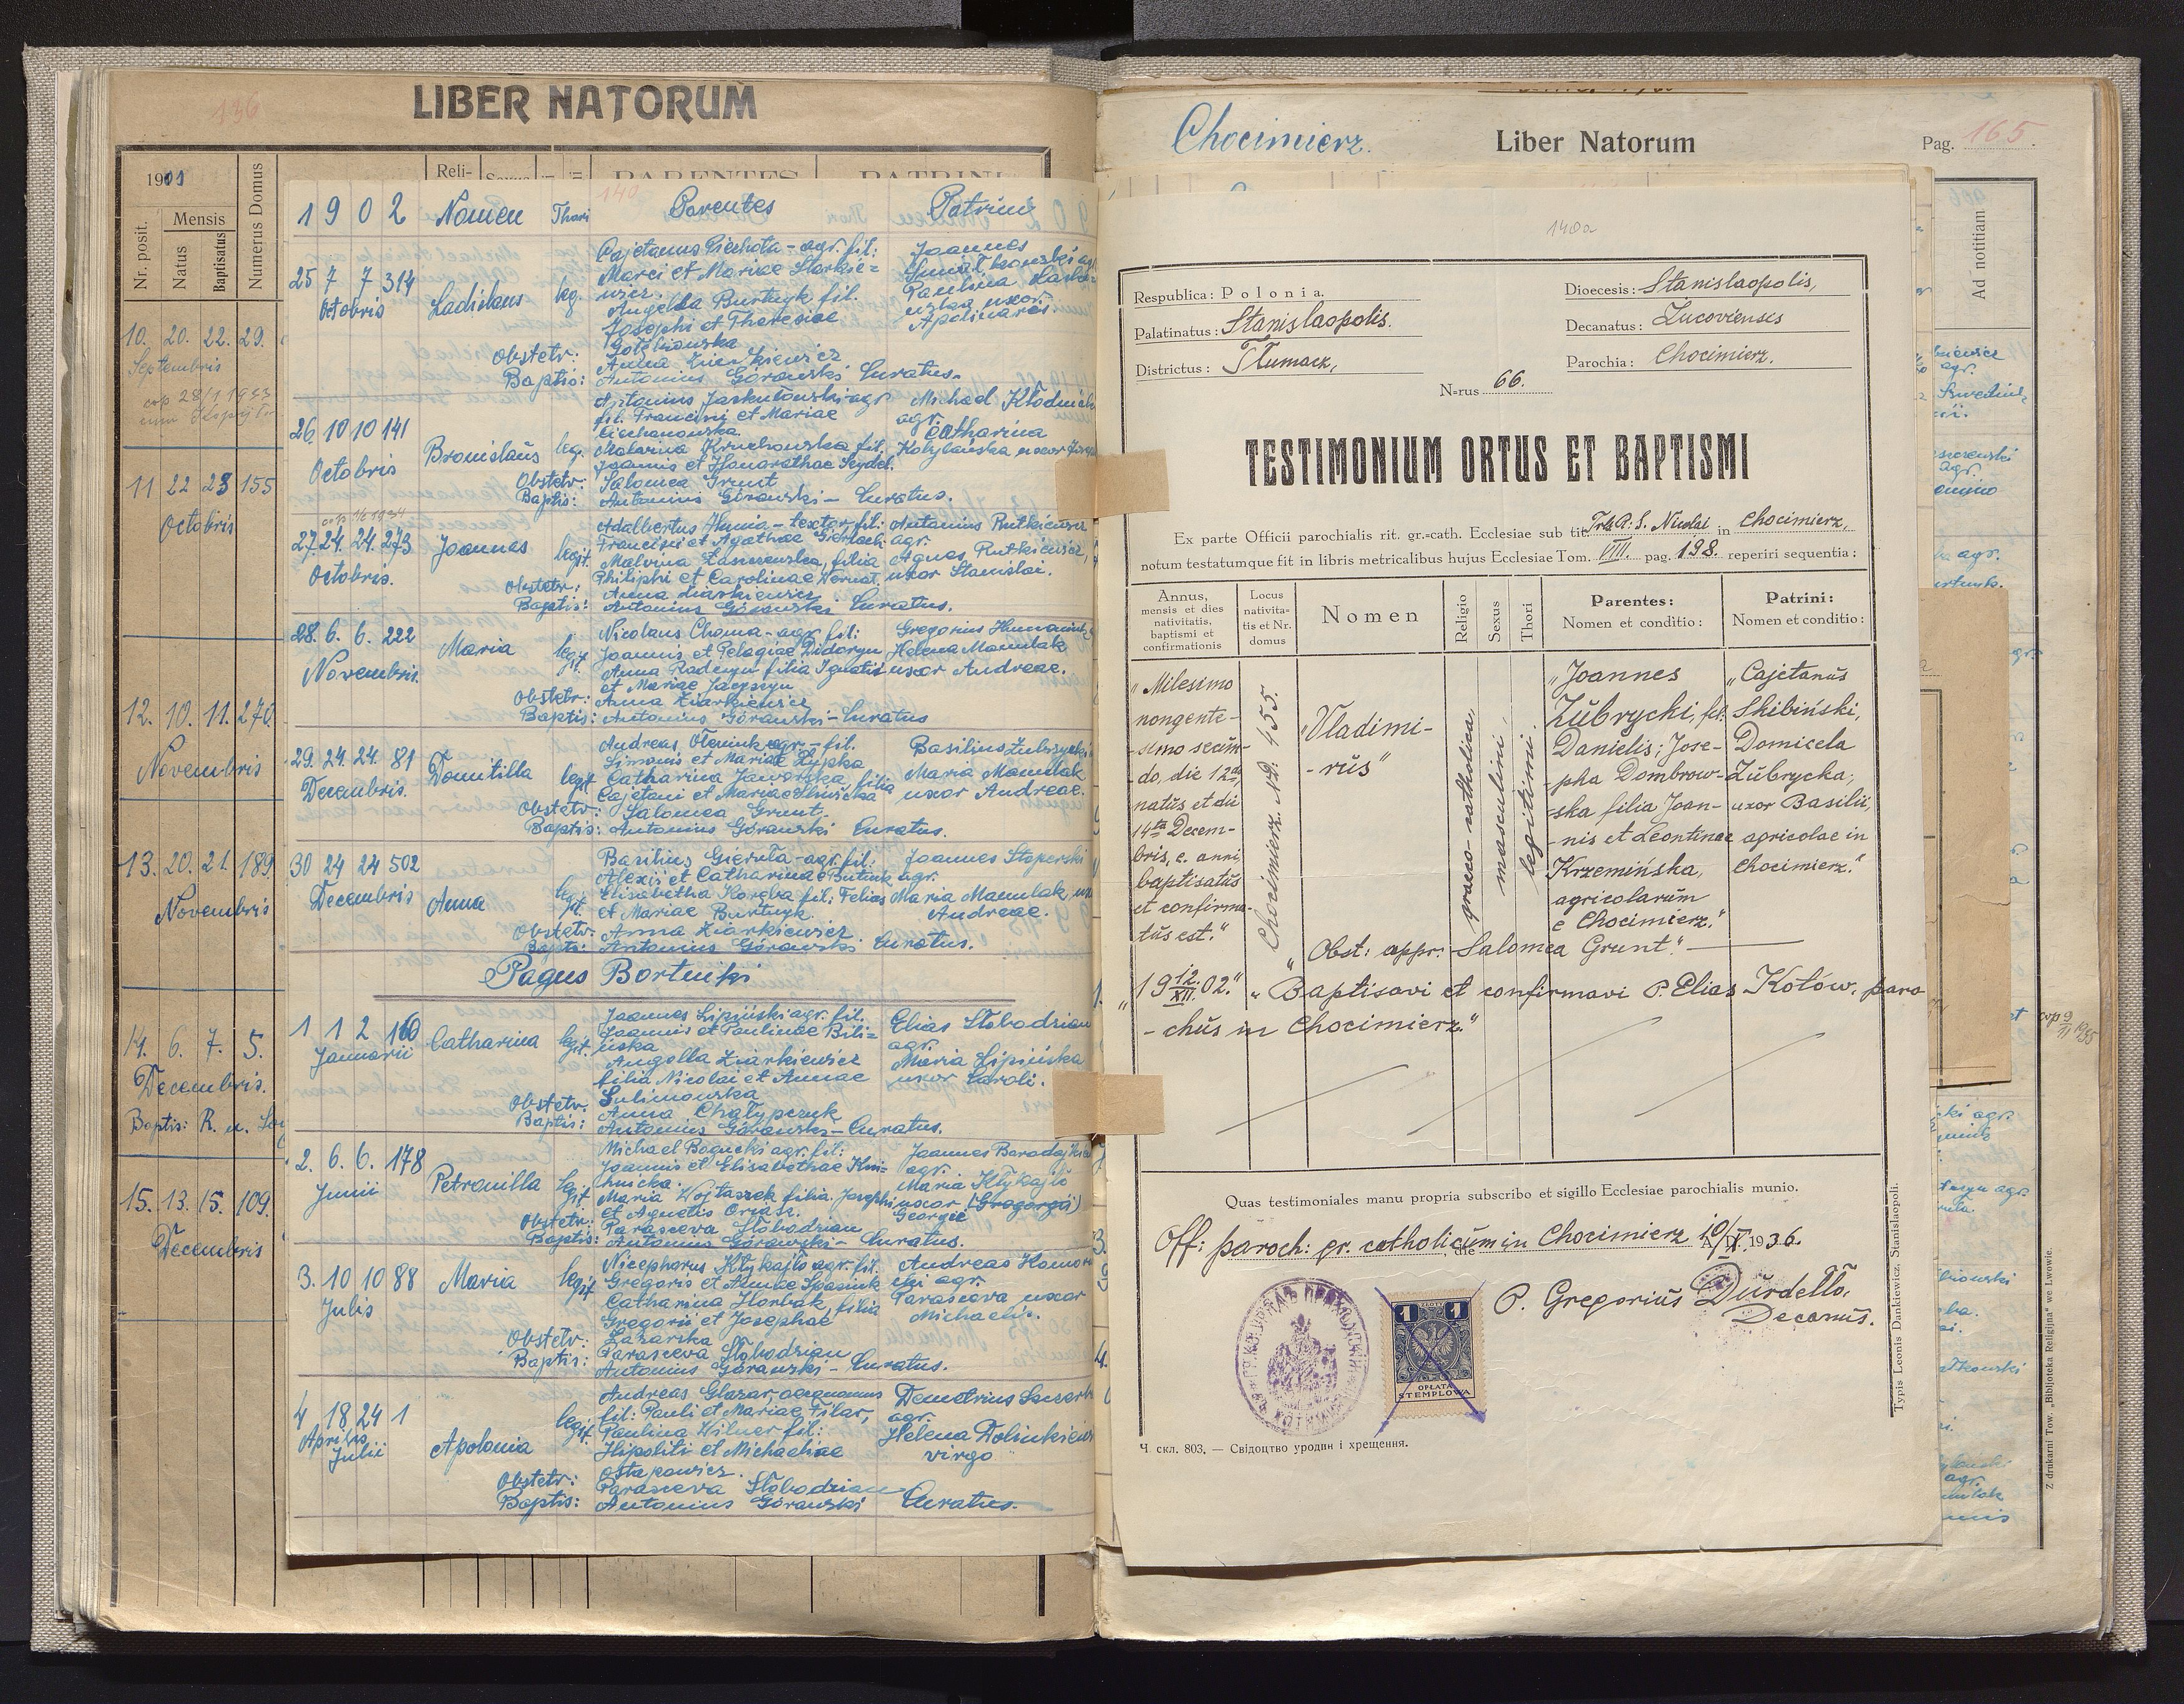 LIBER NATORUM
136
1901
Nr. posit.
Mensis
Natus
Baptisatus
Numerus Domus
Reli-
10. 20. 22. 29.
Septembris
cop 28/1 1933
11 22 23 155
Octobris
12. 10. 11. 270.
Novembris
13. 20. 21. 189.
Novembris
14. 6. 7. 5.
Decembris.
Baptis: R. n.
15. 13. 15. 109.
Decembris
140
1902 Nomen Thori Parentes Patrini
25 7 7 314 Octobris
Ladislaus
leg.
Cajetanus Piechota - agr. fil:
Marci et Mariae Starkie=
wicz.
Angela Burtnyk fil.
Josephi et Theresiae
Gołębiowska
Joannes
Paulina
uxor
Apolinaris.
Obstetr: Anna Ziarkiewicz
Baptis: Antonius Górawski Curatus.
26. 10 10 141
Octobris
Bronislaus
leg.
Antonius Jaskułowski - agr.
fil. Francisci et Mariae
Ciechanowska.
Malvina Kruchowska fil.
Joannis et Honorathae Seydel.
Michael Kłodnicki
agr.
Catharina
Kobylańska uxor
Obstetr: Salomea Grunt
Baptis: Antonius Górawski - Curatus.
27 24. 24. 273
Octobris.
Joannes
legit.
Adalbertus Humia - textor, fil:
Francisci et Agathae Gierlach
Malvina Zaszczewska, filia
Philiphi et Carolinae Hernat.
Antonius Rutkiewicz
agr.
Agnes Rutkiewicz,
uxor Stanislai.
Obstetr: Anna Ziarkiewicz
Baptis: Antonius Górawski Curatus.
28. 6. 6. 222
Novembris.
Maria
legit.
Nicolaus Choma - agr. fil:
Joannis et Pelagiae Didoryn
Anna Radczyn filia Ignatii
et Mariae Jacyszyn
Gregorius
Helena Mamulak
uxor Andreae.
Obstetr: Anna Ziarkiewicz
Baptis: Antonius Górawski - Curatus
29. 24. 24. 81
Decembris.
Domitilla
legit
Andreas Oleniuk agr. - fil.
Simonis et Mariae Zypka
Catharina Jaworska, filia
Cajetani et Mariae
Basilius Zubrzycki
Maria Mamulak
uxor Andreae.
Obstetr: Salomea Grunt.
Baptis: Antonius Górawski Curatus.
30 24 24 502
Decembris
Anna
legit.
Basilius Gieruła - agr. fil:
Alexii et Catharinae Butiuk
Elisabetha Horeba fil: Felias
et Mariae Burtnyk.
Joannes Stoperski
agr.
Maria Mamulak
Andreae.
Obstetr. Anna Ziarkiewicz
Baptis: Antonius Górawski Curatus.
Pagus Bortniki
1 1 2 160
Januarii
Catharina
legit.
Joannes Lipiński agr. fil.
Joannis et Paulinae Bili=
ńska
Angella Ziarkiewicz
filia Nicolai et Annae
Sulimowska
Elias Słobodzian
agr.
Maria Lipińska
uxor Caroli.
Obstetr: Anna Chałypczuk
Baptis: Antonius Górawski - Curatus.
2. 6. 6. 178
Junii
Petronilla
legit
Michael Bogucki agr. fil:
Joannis et Elisabethae Kwi=
Maria Wojtaszek filia Josephi
et Agnetis
Joannes
agr.
Maria Kłykajło
uxor (Gregorgii)
Georgii
Obstetr: Parasceva Słobodzian
Baptis: Antonius Górawski - Curatus.
3. 10 10 88
Julis
Maria
legit
Nicephorus Kłykajło agr. fil.
Gregoris et Annae
Catharina Horbak, filia
Gregoris et Josephae
Lazarska
Andreas
agr.
Parasceva uxor
Michaelis.
Obstetr: Parasceva Słobodzian
Baptis: Antonius Górawski - Curatus.
4 18 24 1
Aprilis
Julii
Apolonia
legit
Andreas Glazar, oeconomus
fil: Pauli et Mariae Filar,
Paulina Wilner fil:
Hipoliti et Michaelinae
Ostapowicz.
Demetrius
agr.
Helena
virgo
Obstetr: Parasceva Słobodzian
Baptis: Antonius Górawski Curatus.
Chocimierz.
Liber Natorum
Pag. 165.
Ad notitiam
140a
Respublica: Polonia.
Palatinatus: Stanislaopolis.
Districtus: Tłumacz,
Dioecesis: Stanislaopolis,
Decanatus: Żucoviensis
Parochia: Chocimierz.
N-rus 66.
TESTIMONIUM ORTUS ET BAPTISMI
Ex parte Officii parochialis rit. gr.=cath. Ecclesiae sub tit. S. Nicolai in Chocimierz,
notum testatumque fit in libris metricalibus hujus Ecclesiae Tom. VIII. pag. 198. reperiri sequentia:
Annus, mensis et dies nativitatis, baptismi et confirmationis
Locus nativita-tis et Nr. domus
Nomen
Religio
Sexus
Thori
Parentes:
Nomen et conditio:
Patrini:
Nomen et conditio:
„Milesimo
nongente-
-simo secun-
-do, die 12da
natus et die
14ta Decem-
bris, e. anni
baptisatus
et confirma-
tus est."
Chocimierz. No: 455.
„Vladimi-
-rus"
graeco-catholica,
masculini,
legitimi.
„Joannes
Zubrycki, fil.
Danielis; Jose-
-pha Dombrow-
-ska filia Joan-
-nis et Leontinae
Krzemińska,
agricolarum
e Chocimierz."
„Cajetanus
Skibiński,
Domicela
Zubrycka,
uxor Basilii,
agricolae in
Chocimierz."
„Obst: appr. Salomea Grunt."
„19 12/XII. 02." „Baptisavi et confirmavi P. Elias Kołów, paro
-chus in Chocimierz."
Quas testimoniales manu propria subscribo et sigillo Ecclesiae parochialis munio.
Off: paroch: gr. catholicum in Chocimierz die 10/X. A. D. 1936.
P. Gregorius Durdełło,
Decanus.
1 ZŁOTY 1
OPŁATA
STEMPLOWA
Ч. скл. 803. — Свідоцтво уродин і хрещення.
Typis Leonis Dankiewicz, Stanislaopoli.
Z drukarni Tow. „Bibljoteka Religijna" we Lwowie.